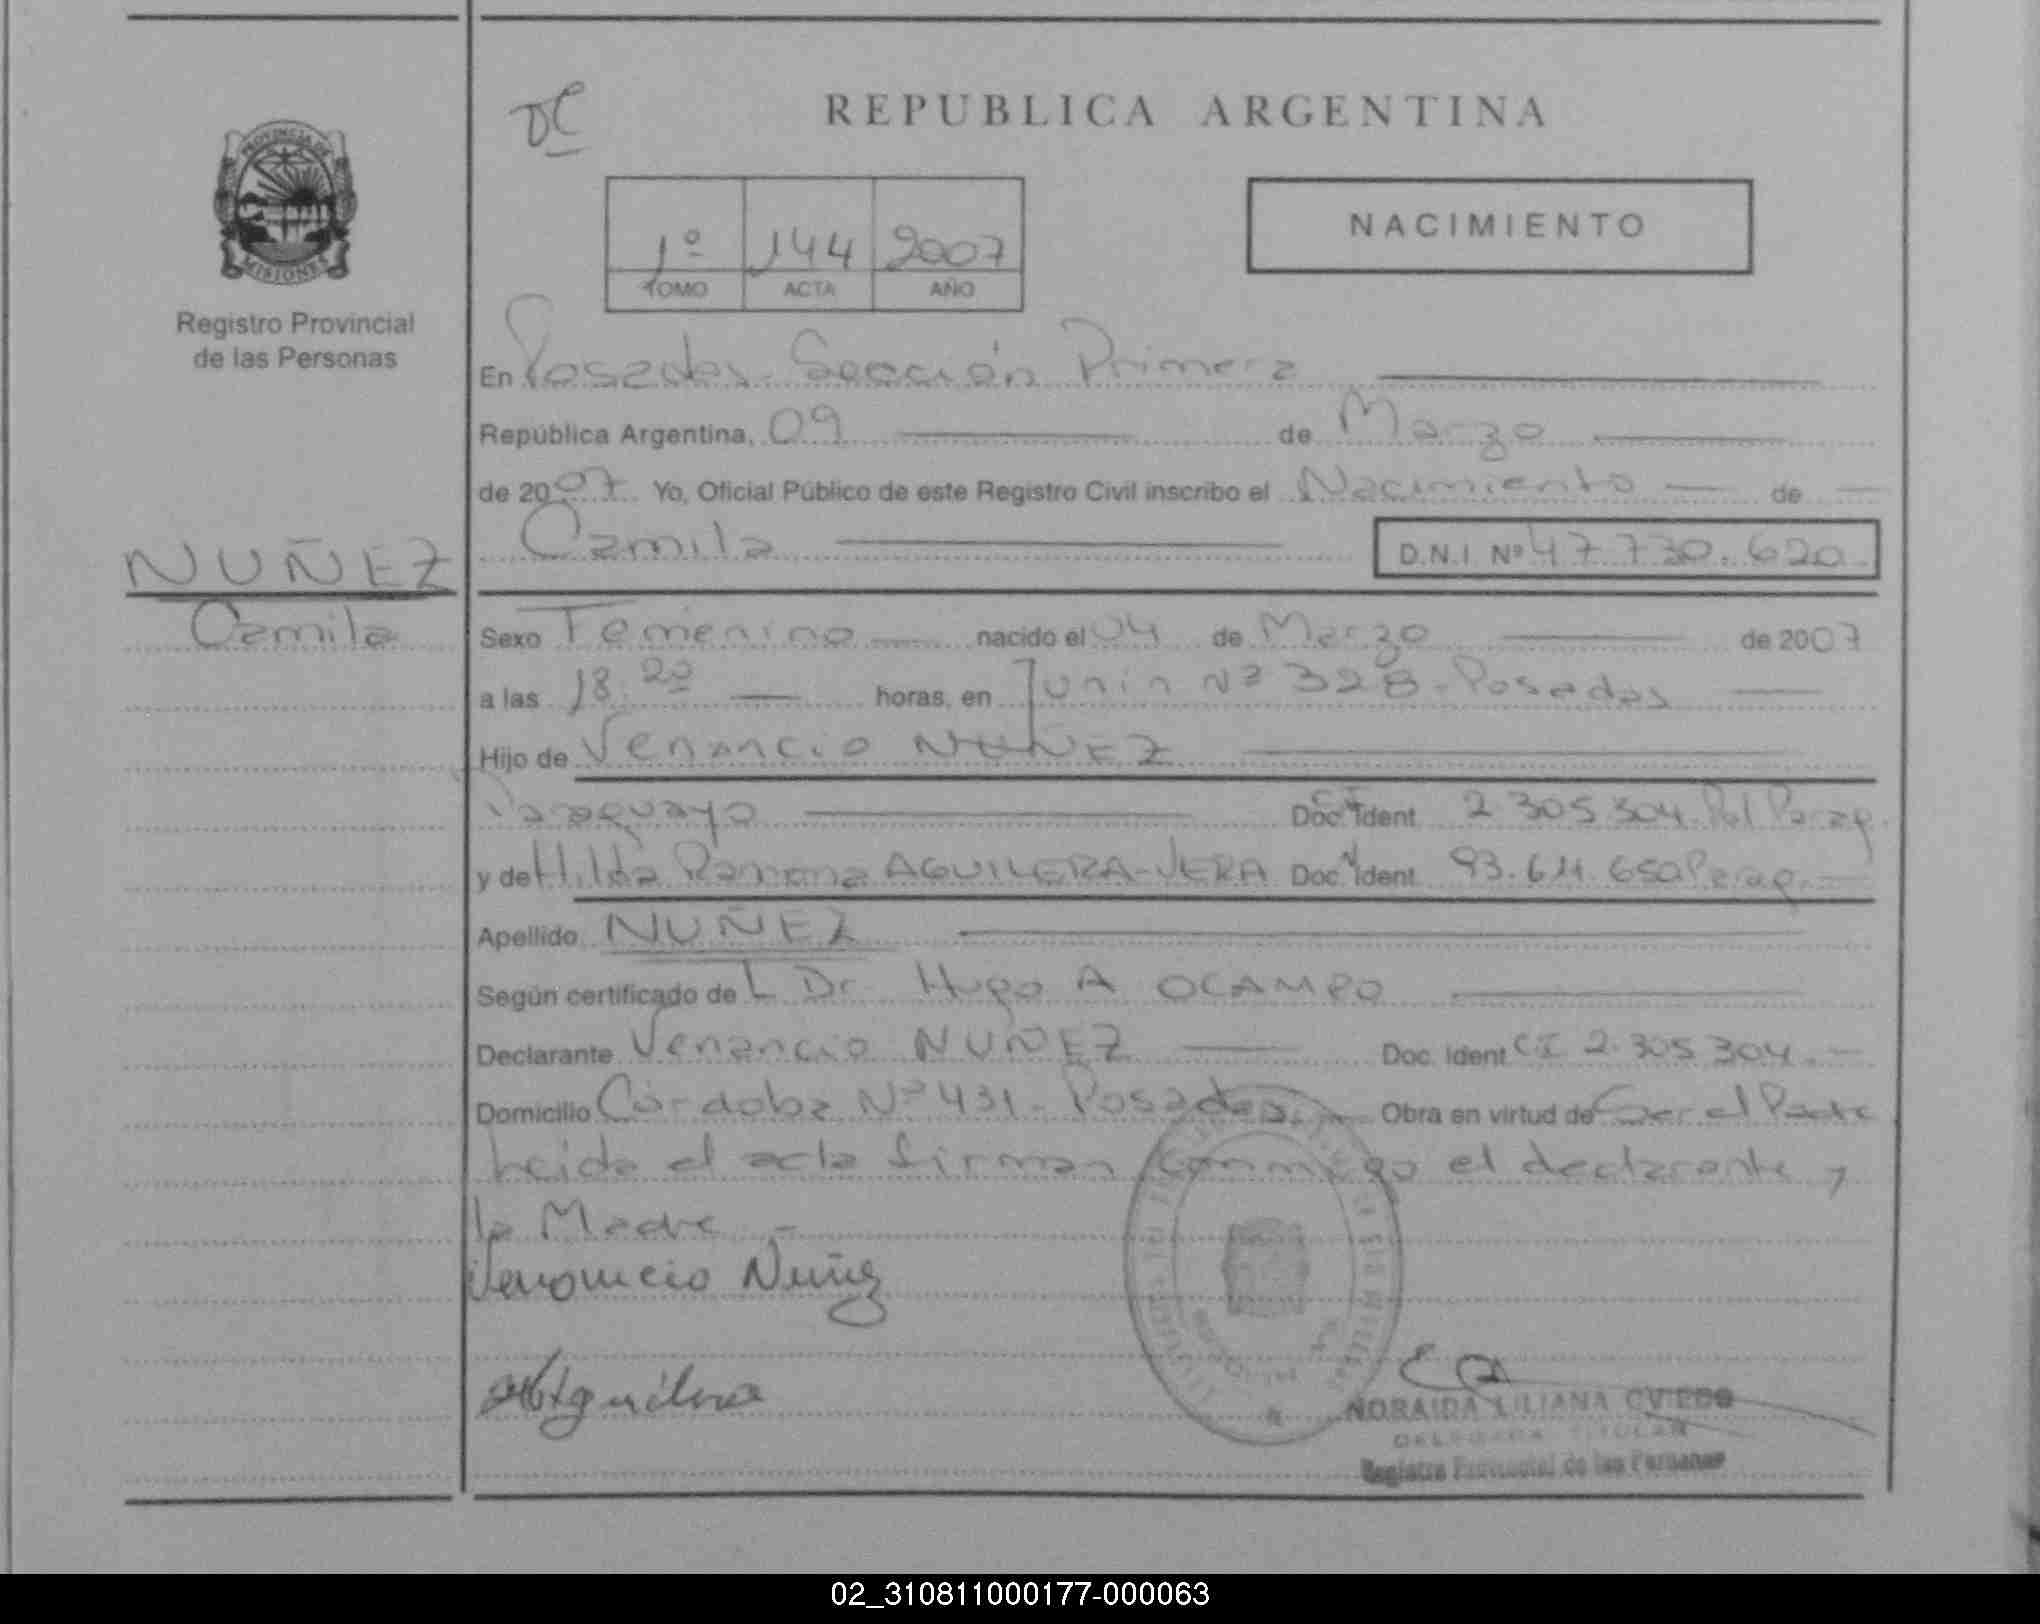 DC
REPUBLICA ARGENTINA
PROVINCIA DE
MISIONES
Registro Provincial
de las Personas
1º 144 2007
TOMO ACTA AÑO
NACIMIENTO
En Posadas Sección Primera
República Argentina, 09 de Marzo
de 2007 Yo, Oficial Público de este Registro Civil inscribo el Nacimiento de
Camila D.N.I. Nº 47.730.620
NUÑEZ
Camila
Sexo Femenino nacido el 04 de Marzo de 2007
a las 18.20 horas, en Junin Nº 328 - Posadas
Hijo de Venancio NUÑEZ
Paraguayo Doc. Ident CI 2 305 304 Pol Parag.
y de Hilda Ramona AGUILERA-VERA Doc. Ident 93.611.650 Parag.
Apellido NUÑEZ
Según certificado de L Dr. Hugo A OCAMPO
Declarante Venancio NUÑEZ Doc. Ident CI 2.305 304.-
Domicilio Córdoba Nº 431 - Posadas.- Obra en virtud de Ser el Padre
Leida el acta firman conmigo el declarante y
la Madre.-
Venancio Nuñez
Aguilera
NORAIDA LILIANA OVIEDO
DELEGADA TITULAR
Registro Provincial de las Personas
02_310811000177-000063